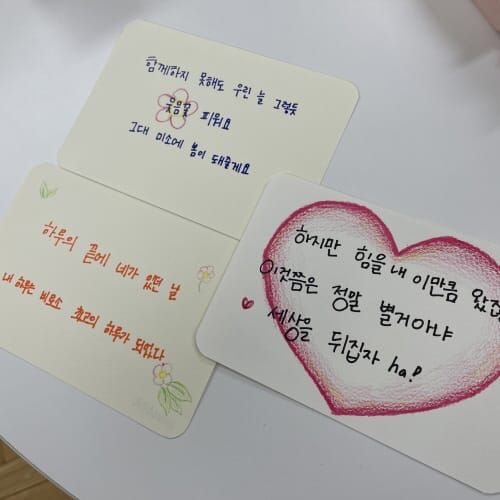 함께하지 못해도 우린 늘 그렇듯
웃음꽃 피워요
그대 미소에 봄이 돼줄게요
하루의 끝에 네가 있던 날
내 하루는 비로소 최고의 하루가 되었다
하지만 힘을 내 이만큼 왔잖
이것쯤은 정말 별거아냐
세상을 뒤집자 ha!